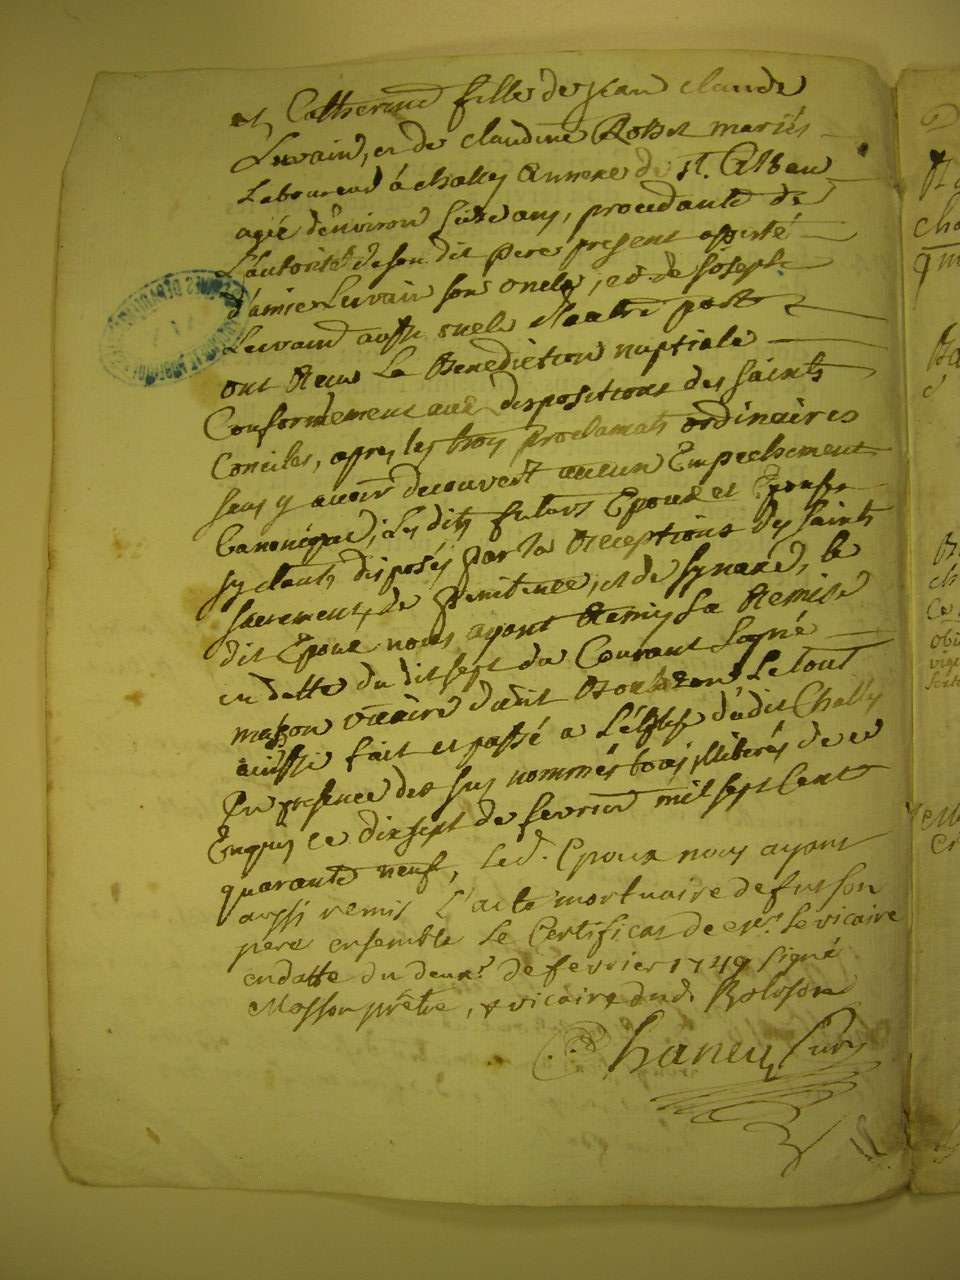 et Catherine fille de jean claude
Luvain, et de claudine Robet mariés
Laboureur à challey annexe de st. Alban
agée d'environ seize ans, procedante de
L'autorité de son dit pere present assisté
d'amie Luvain son oncle, et de joseph
Luvain aussi oncle d'autre part
ont Receu La Benediction nuptiale
Conformement aux dispositions des saints
Conciles, apres les trois proclamats ordinaires
sans y avoir decouvert aucun Empechement
Canonique, Les dits futurs Epoux et Epouse
sy etants disposés par la Reception des saints
sacrements de penitence, et de synaxe, le
dit Epoux nous ayant Remis sa Remise
en datte du dit sept du Courant signé
masson vicaire dudit Le tout
ainssi fait et passé a L'église dudit Challey
En presence des sus nommés tous illiterés de ce
Enquis ce dixsept de fevrier mil sept Cent
quarante neuf, Led. Epoux nous ayant
aussi remis L'acte mortuaire de fut son
pere ensemble Le Certificat de Le vicaire
en datte du deux. de fevrier 1749 signé
Masson prêtre, et vicaire dud.
Chaney Curé